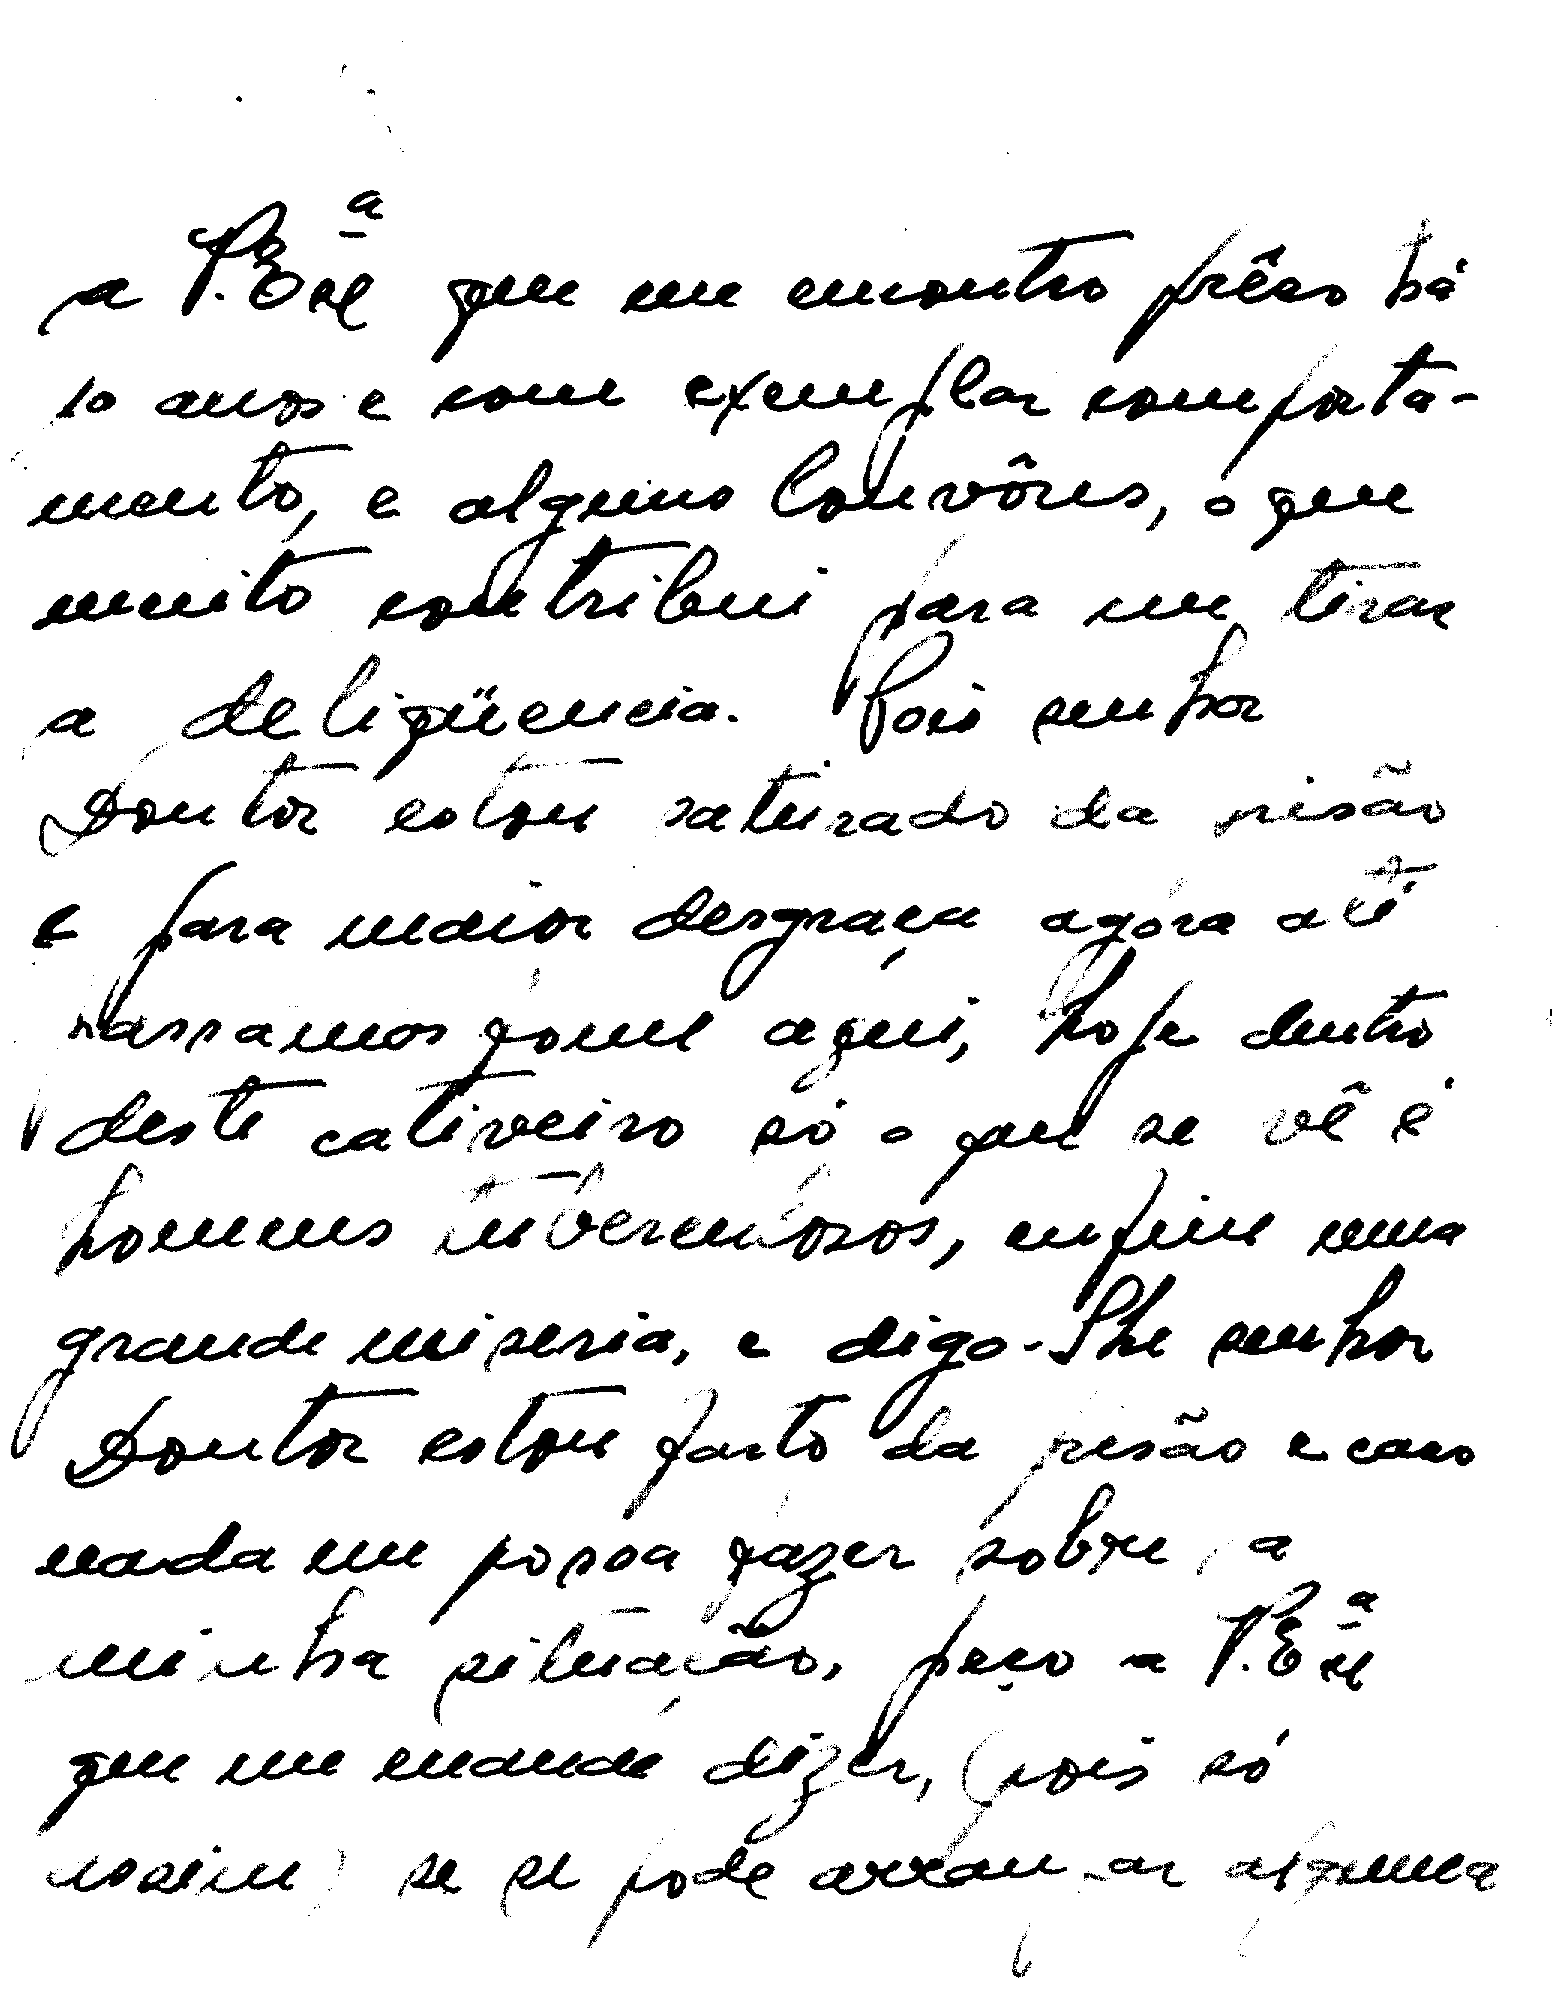 a V.Exª que me encontro prêso há
10 anos e com exemplar comporta-
mento, e alguns louvôres, o que
muito contribui para me tirar
a deligüencia. Pois senhor
Doutor estou saturado da prisão
e para maior desgraça agóra até
passamos fome aqui, hoje dentro
deste cativeiro só o que se vê é
homens tuberculosos, enfim uma
grande miseria, e digo-lhe senhor
Doutor estou farto da prisão e caso
nada me possa fazer sobre a
minha situação, peço a V.Exª
que me mande dizer, (pois só
assim) se se pode arranjar alguma